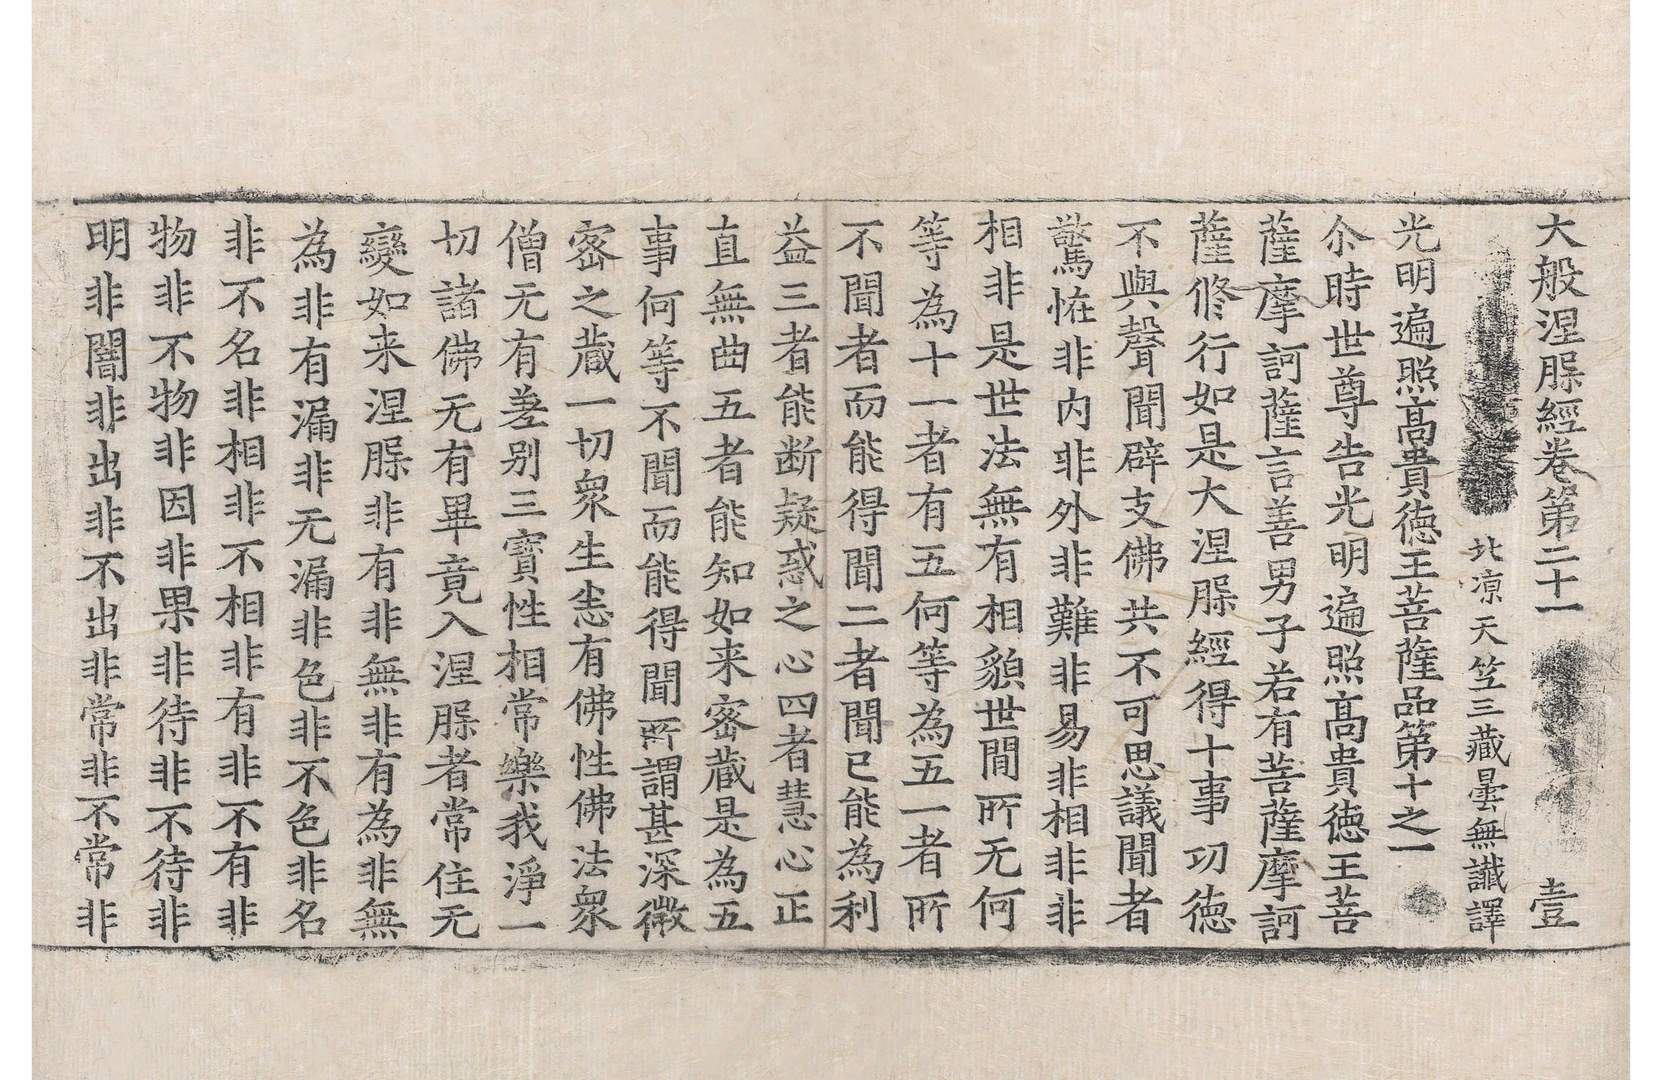 大般涅槃經卷第二十一 壹
北凉天竺三藏曇無讖譯
光明遍照髙貴徳王菩薩品第十之一
尒時世尊告光明遍照髙貴徳王菩
薩摩訶薩言善男子若有菩薩摩訶
薩修行如是大涅槃經得十事功徳
不與聲聞辟支佛共不可思議聞者
驚恠非内非外非難非易非相非非
相非是世法無有相貌世間所无何
等為十一者有五何等為五一者所
不聞者而能得聞二者聞已能為利
益三者能断疑惑之心四者慧心正
直無曲五者能知如来宻蔵是為五
事何等不聞而能得聞所謂甚深微
宻之蔵一切衆生悉有佛性佛法衆
僧无有差别三寳性相常樂我淨一
切諸佛无有畢竟入涅槃者常住无
變如来涅槃非有非無非有為非無
為非有漏非无漏非色非不色非名
非不名非相非不相非有非不有非
物非不物非因非果非待非不待非
明非闇非出非不出非常非不常非